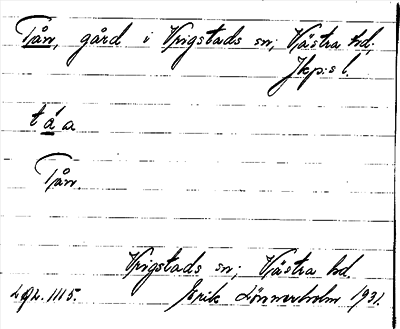 Tån, gård i Vrigstads sn; Västra hd;
Jkp:s l.
t á a
Tån
Vrigstads sn; Västra hd.
Erik Lönnerholm 1931.